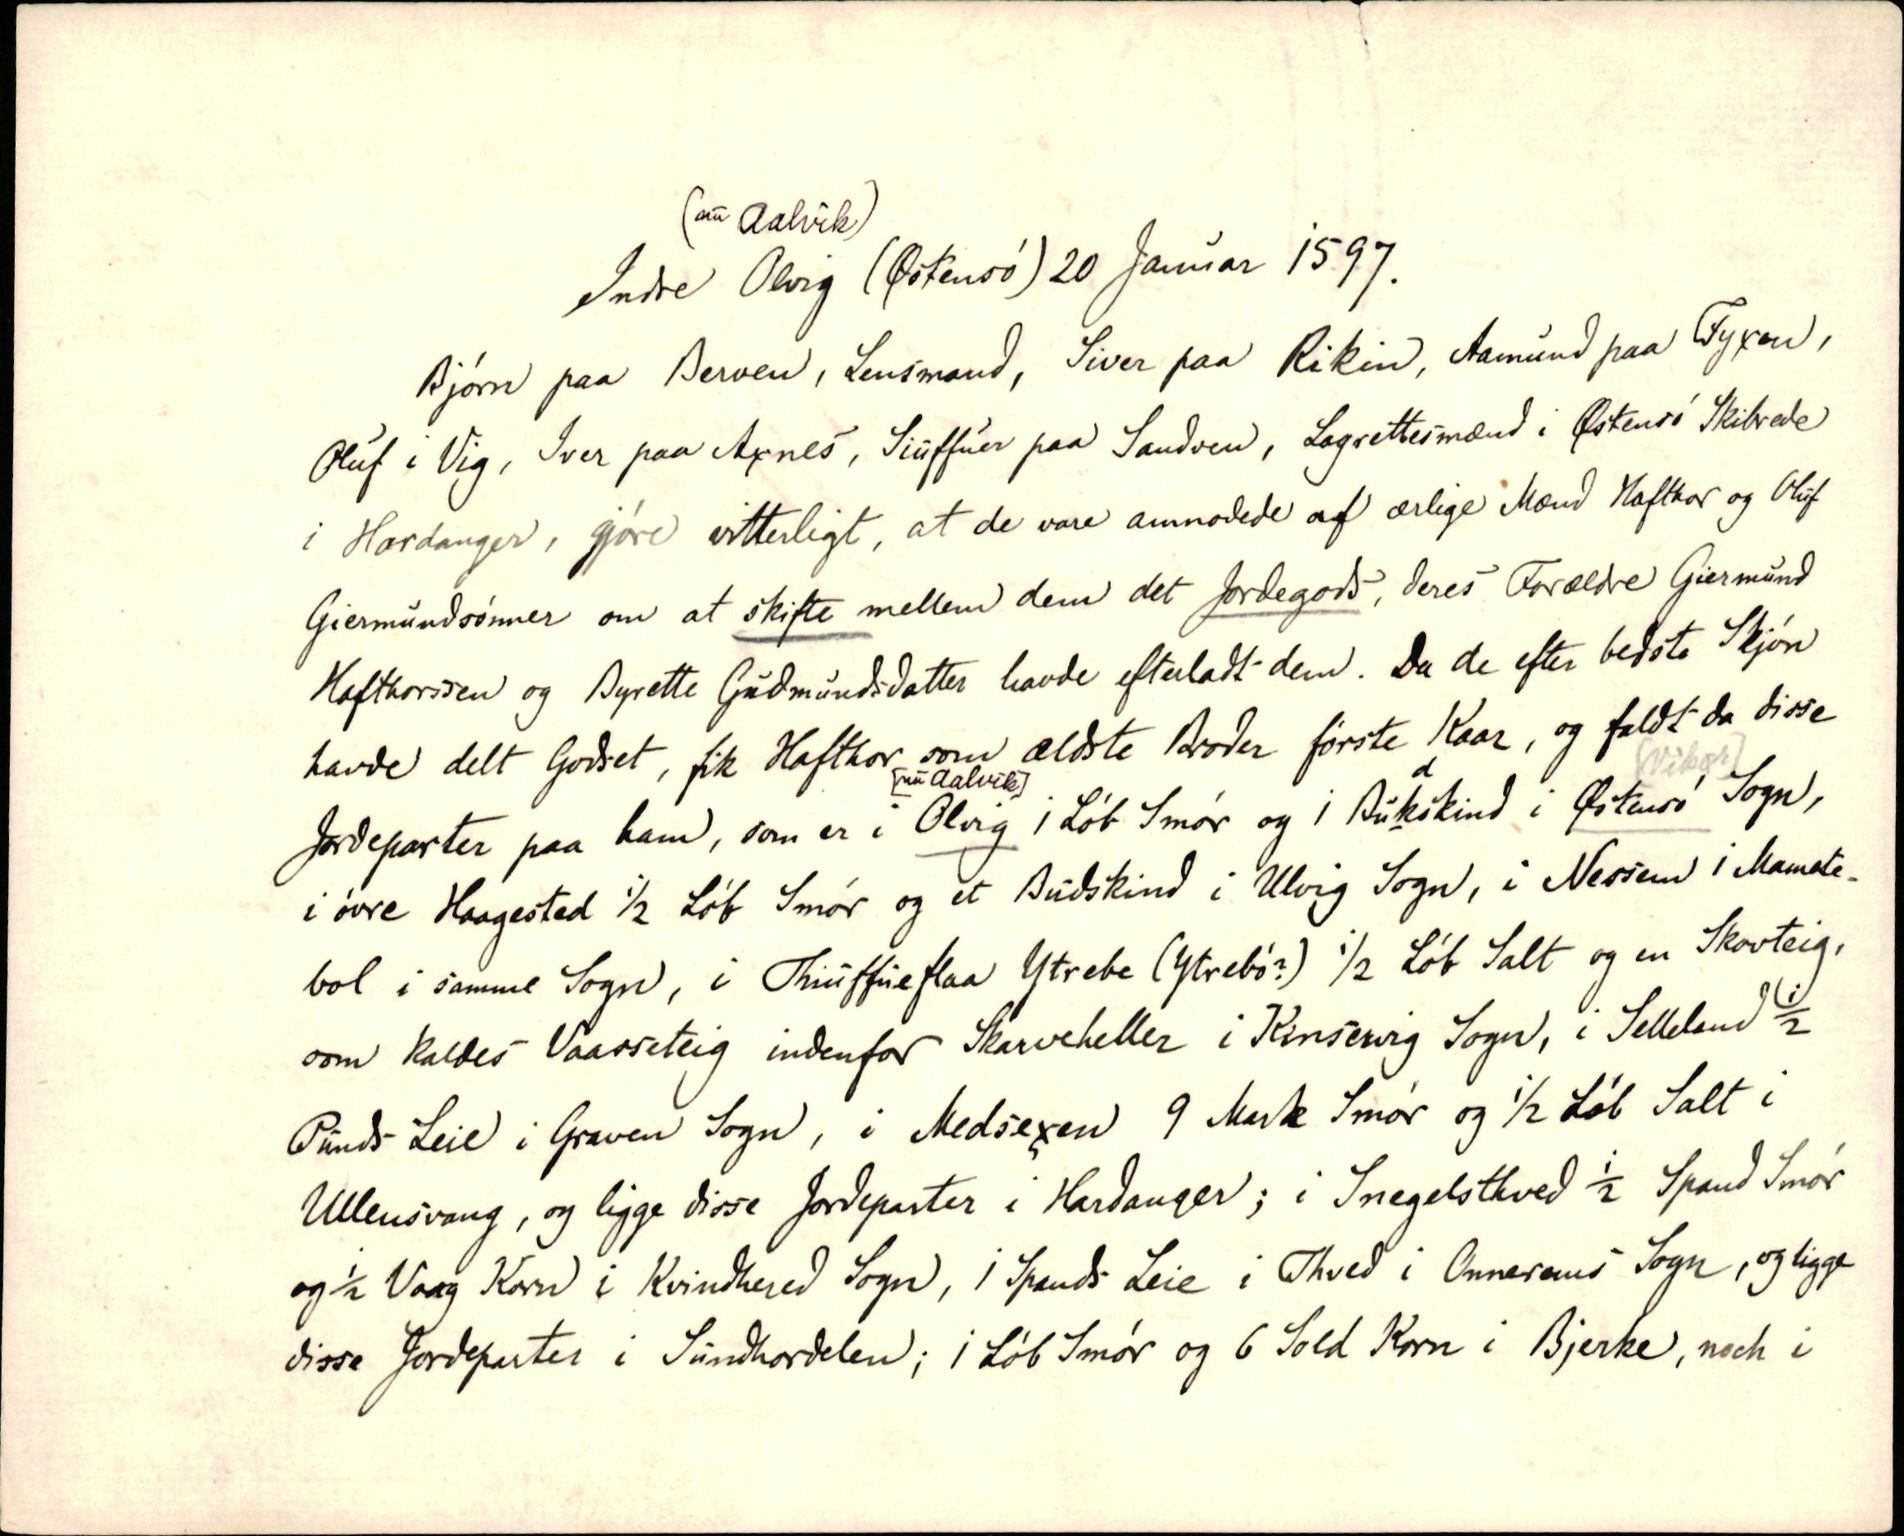 (nu Aalvik)
Indre Olvig (Østensö) 20 Januar 1597.
Björn paa Berven, Lensmand, Siver paa Rikin, Aamund paa Fyxen,
Oluf i Vig, Iver paa Axnes, Siuffuer paa Sandven, Lagrettesmænd i Østensö Skibrede
i Hardanger, gjöre vitterligt, at de vare anmodede af ærlige Mænd Hafthor og Oluf
Giermundsönner om at skifte mellem dem det Jordegods, deres Forældre Giermund
Hafthorssen og Byrette Gudmundsdatter havde efterladt dem. Da de efter bedste Skjön
havde delt Godset, fik Hafthor som ældste Broder förste Kaar, og faldt da disse
[nu Aalvik] d [Vikør]
Jordeparter paa ham, som er i Olvig 1 Löb Smör og 1 Bukskind i Østensö Sogn,
i övre Haagested 1/2 Löb Smör og et Budskind i Ulvig Sogn, i Nessem 1 Mamate-
bol i samme Sogn, i Thiuffueflaa Ytrebe (Ytrebö?) 1/2 Löb Salt og en Skovteig,
som kaldes Vaasseteig indenfor Skarveheller i Kinservig Sogn, i Selleland 1/2
Punds Leie i Graven Sogn, i Medsexen 9 Mark Smör og 1/2 Löb Salt i
Ullensvang, og ligge disse Jordeparter i Hardanger; i Snegelsthved 1/2 Spand Smör
og 1/2 Vaag Korn i Kvindhered Sogn, 1 Spands Leie i Thved i Onnerems Sogn, og ligge
disse Jordeparter i Sundhordelen; 1 Löb Smör og 6 Sold Korn i Bjerke, noch i